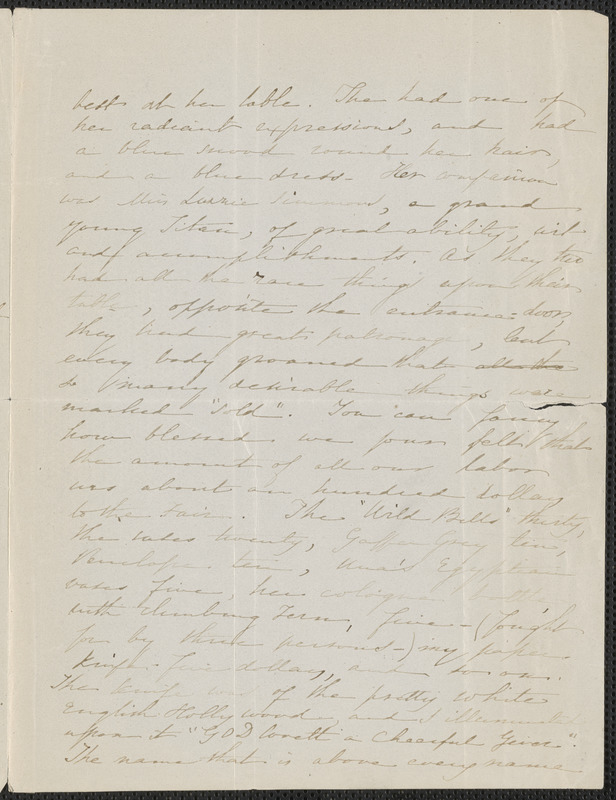 best at her table. She had one of
her radiant expressions, and had
a blue snood round her hair,
and a blue dress - Her companion
was Miss Lizzie Simmons, a grand
young Titan, of great ability, wit
and accomplishments. As they two
had all the rare things upon their
table, opposite the entrance-door,
they had great patronage, but
every body groaned that all the
so many desirable things were
marked "sold". You can fancy
how blessed we four felt that
the amount of all our labor
was about an hundred dollars
to the Fair. The "Wild Bells" thirty,
the vases twenty, Gaffer Grey ten,
Penelope ten, Una's Egyptian
vases five, her cologne bottle
with climbing Fern, five - (fought
for by three persons -) my paper
knife five dollars, and so on.
The knife was of the pretty white
English Holly wood, and I illuminated
upon it "GOD loveth a Cheerful Giver".
The name that is above every name